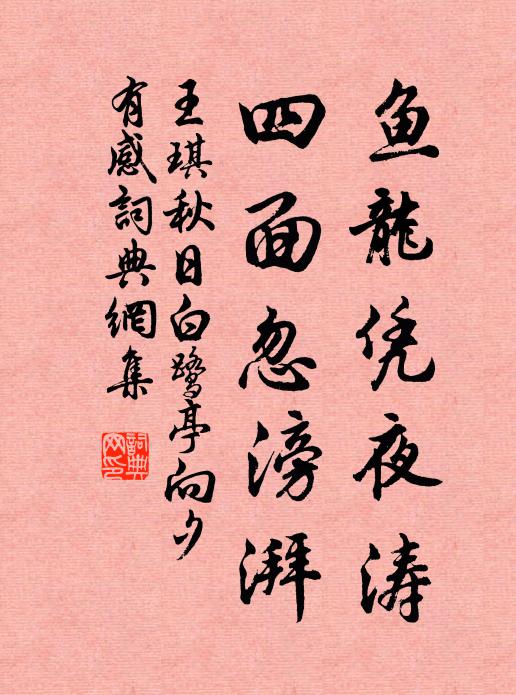 鱼龍凭夜涛
四面忽滂湃
王琪秋日白鹭亭向夕
有感詞典網集
詞典网印